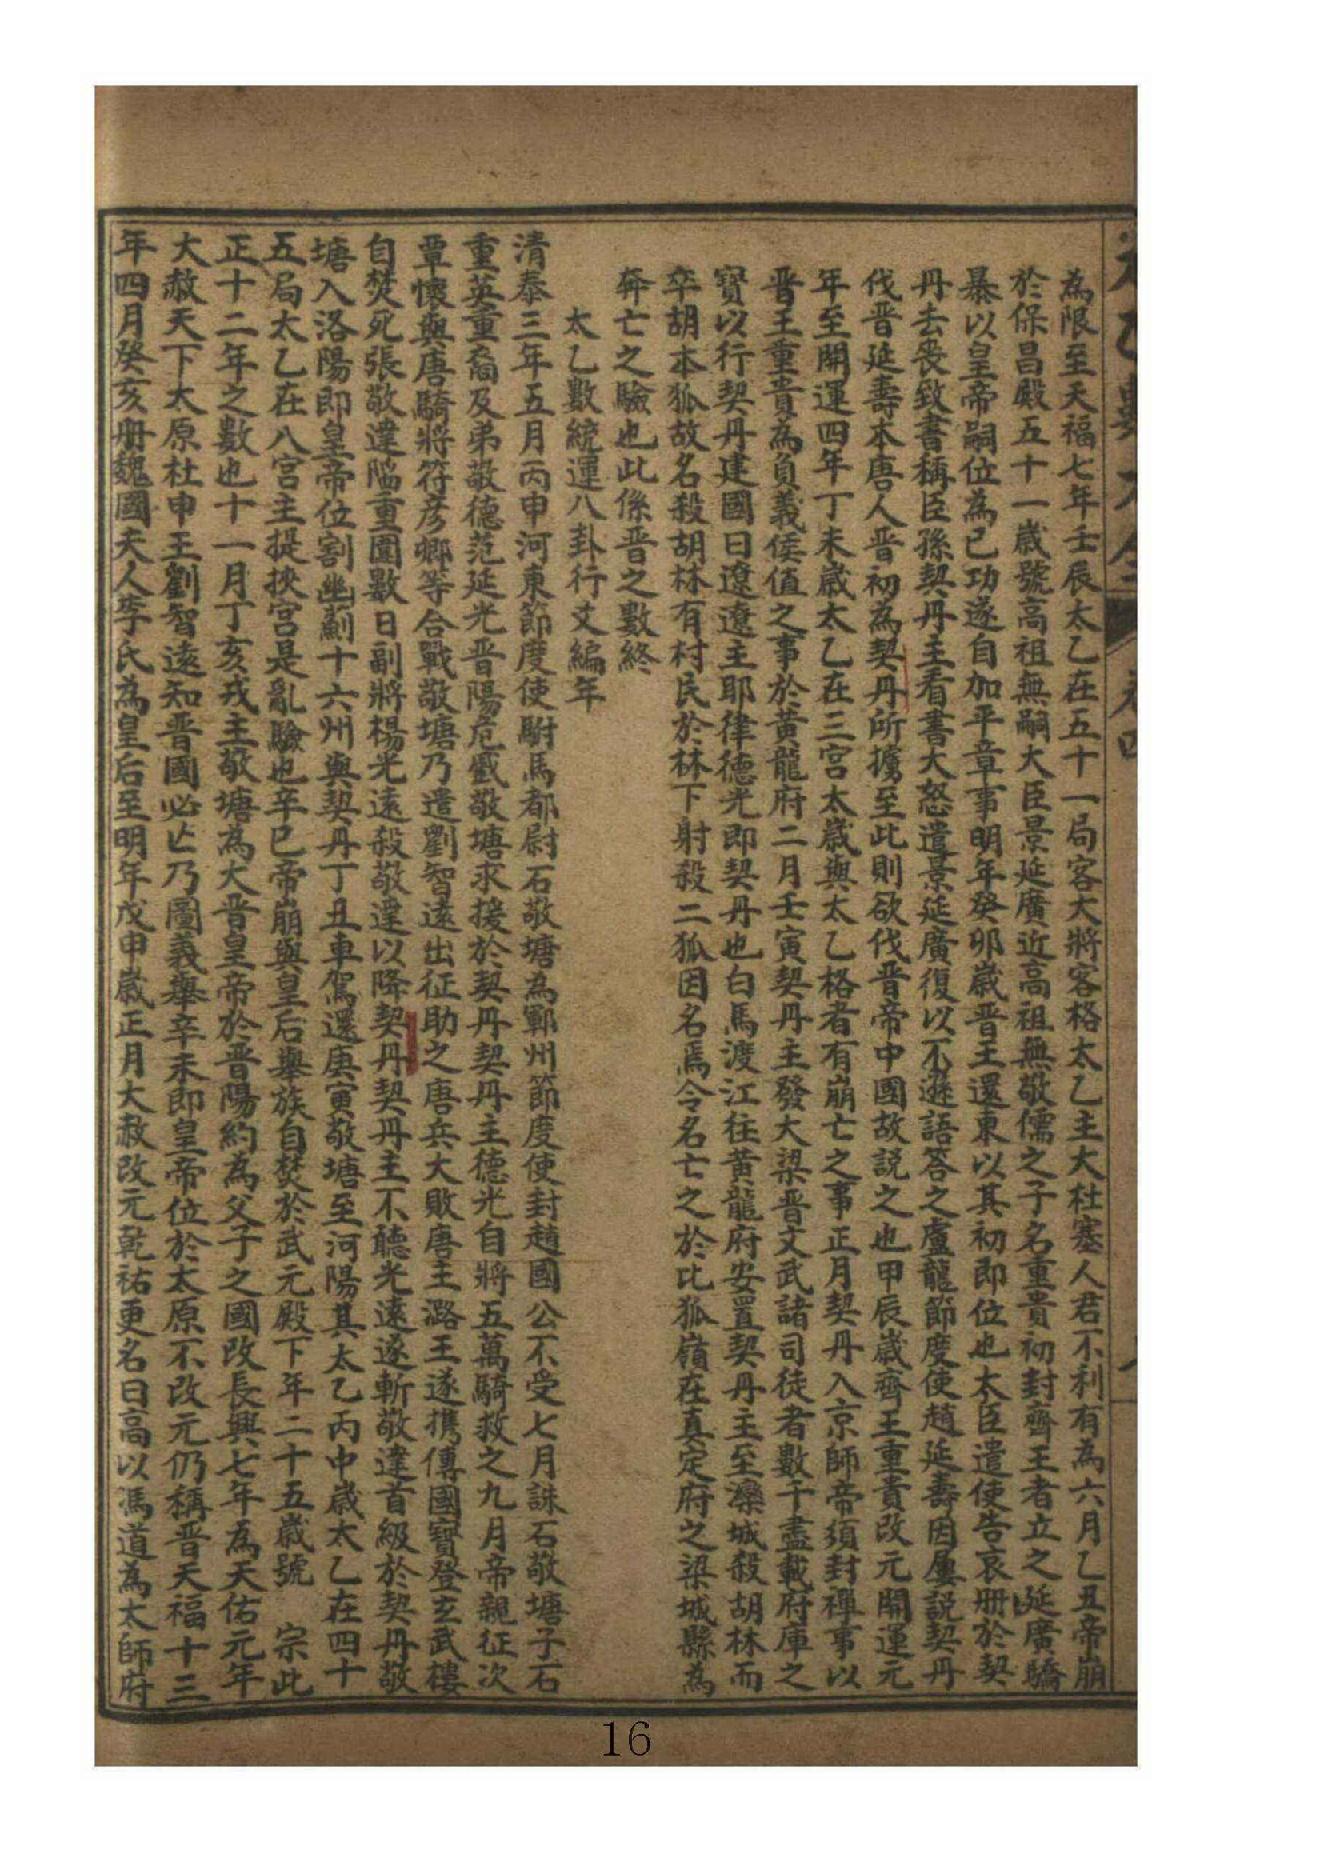 為限至天福七年壬辰太乙在五十一局客大將客格太乙主大社塞人君不利有為六月乙丑帝崩
於保昌殿五十一歲號高祖無嗣大臣景延廣近高祖無敬儒之子名重貴初封齊王者立之延廣驕
暴以皇帝嗣位為己功遂自加平章事明年癸卯歲晋王還東以其初即位也太臣遣使告哀册於契
丹去喪致書稱臣孫契丹主看書大怒遣景延廣復以不遜語答之盧龍節度使趙延壽因屢説契丹
伐晋延壽本唐人晋初為契丹所擄至此則欲伐晋帝中國故説之也甲辰歲齊王重貴改元開運元
年至開運四年丁未歲太乙在三宮太歲與太乙格者有崩亡之事正月契丹入京師帝須封禪事以
晋王重貴為負義倭值之事於黃龍府二月壬寅契丹主發大梁晋文武諸司徒者數千盡載府庫之
寶以行契丹建國曰遼遼主耶律德光即契丹也白馬渡江往黃龍府安置契丹主至灤城殺胡林而
卒胡本狐故名殺胡林有村民於林下射殺二狐因名焉今名亡之於比狐嶺在真定府之梁城縣為
奔亡之驗也此係晋之數終
太乙數統運八卦行文編年
清泰三年五月丙申河東節度使駙馬都尉石敬塘為鄆州節度使封趙國公不受七月誅石敬塘子石
重英重裔及弟敬德范延光晋陽危戲敬塘求援於契丹契丹主德光自將五萬騎救之九月帝親征次
覃懷與唐騎將符彦卿等合戰敬塘乃遣劉智遠出征助之唐兵大敗唐主潞王遂携傳國寶登玄武樓
自焚死張敬達陷重圍數日副將楊光遠殺敬達以降契丹契丹主不聽光遠遂斬敬達首級於契丹敬
塘入洛陽即皇帝位割幽薊十六州與契丹丁丑車駕還庚寅敬塘至河陽其太乙丙中歲太乙在四十
五局太乙在八宮主提挾宮是亂驗也辛巳帝崩與皇后舉族自焚於武元殿下年二十五歲號 宗此
正十二年之數也十一月丁亥戎主敬塘為大晋皇帝於晋陽約為父子之國改長興七年為天佑元年
大赦天下太原杜申王劉智遠知晋國必亡乃圖義舉辛未即皇帝位於太原不改元仍稱晋天福十三
年四月癸亥册魏國夫人李氏為皇后至明年戊申歲正月大赦改元乾祐更名曰高以馮道為太師府
16